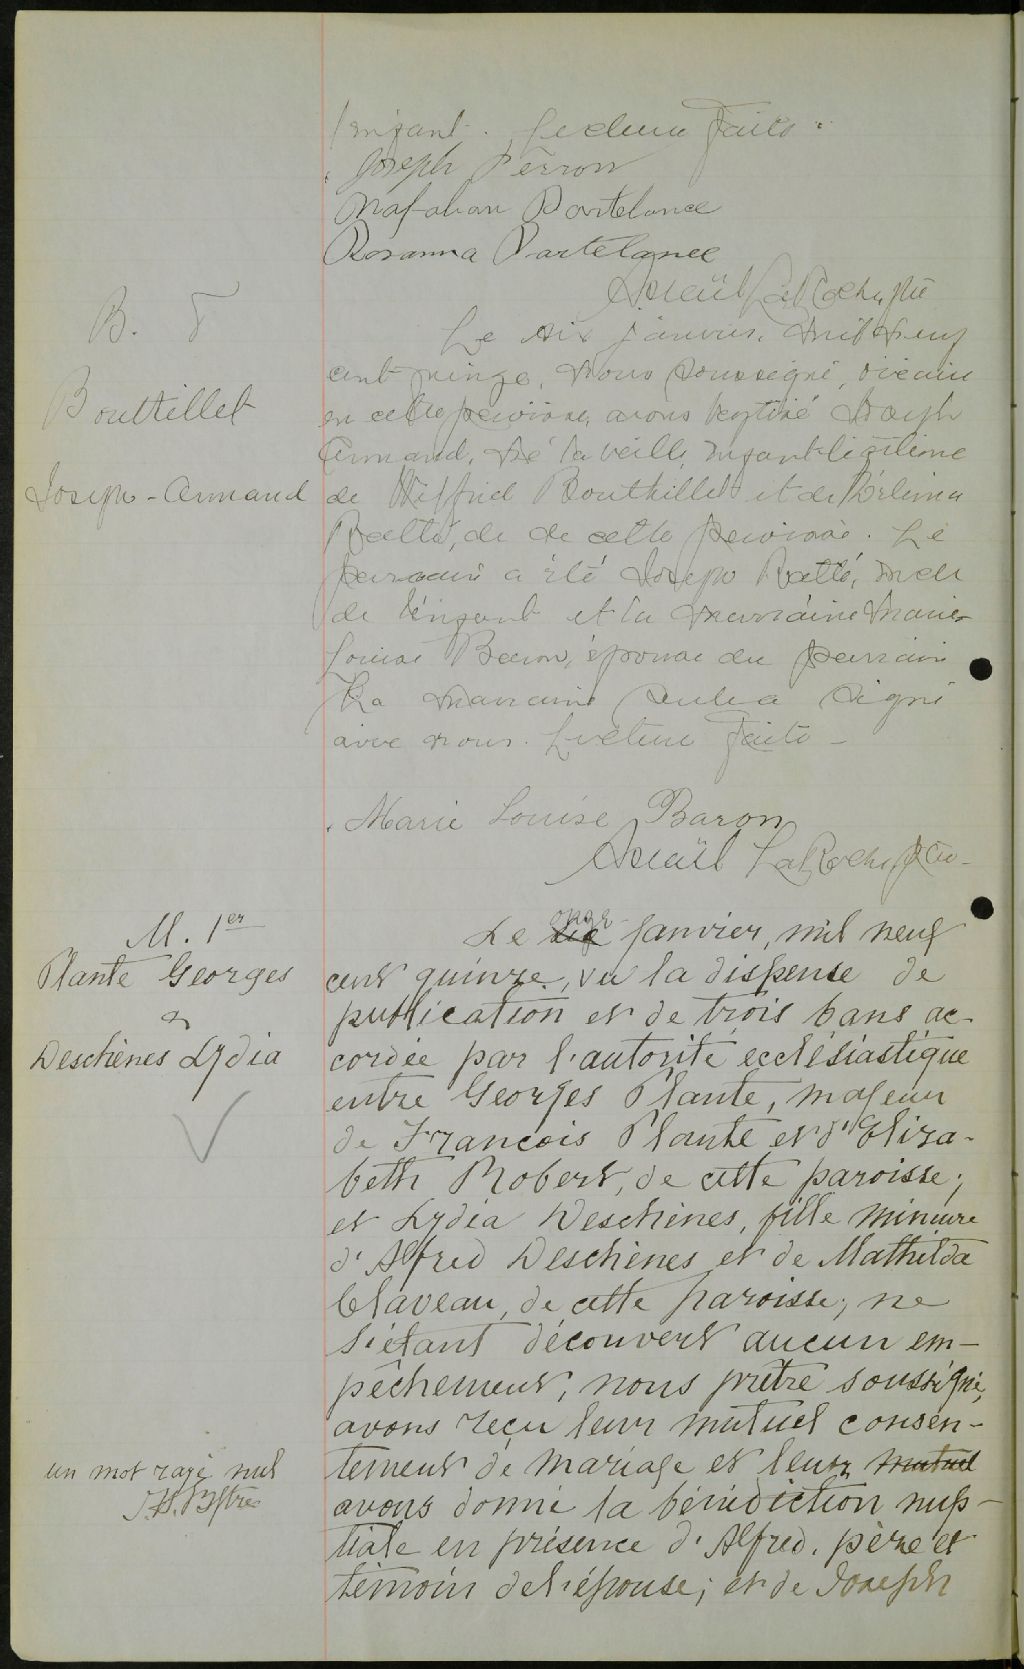 l'enfant. Lecture faite.
Joseph Perron
Portelance
Rosanna Portelance
LaRoche, ptre
B. 5
Bouthillet
Joseph-Armand
Le six janvier, mil neuf
cent quinze, nous soussigné, vicaire
en cette paroisse, avons baptisé Joseph
Armand, né la veille, enfant légitime
de Wilfrid Bouthillet et de Zélima
Ratté, de cette paroisse. Le
parrain a été Joseph Ratté,
de l'enfant et la marraine Marie-
Louise Baron, épouse du parrain
La marraine seule a signé
avec nous. Lecture faite-
Marie Louise Baron
LaRoche, ptre-
M. 1er
Plante Georges
&
Deschènes Lydia
Le onze janvier, mil neuf
cent quinze, vu la dispense de
publication et de trois bans ac-
cordée par l'autorité ecclésiastique
entre Georges Plante, majeur
de François Plante et d'Eliza-
beth Robert, de cette paroisse;
et Lydia Deschènes, fille mineure
d'Alfred Deschènes et de Mathilda
Claveau, de cette paroisse; ne
s'étant découvert aucun em-
pêchement, nous prêtre soussigné,
avons reçu leur mutuel consen-
tement de mariage et leur mutuel
avons donné la bénédiction nup-
tiale en présence d'Alfred, père et
témoin de l'épouse; et de Joseph
un mot rayé nul